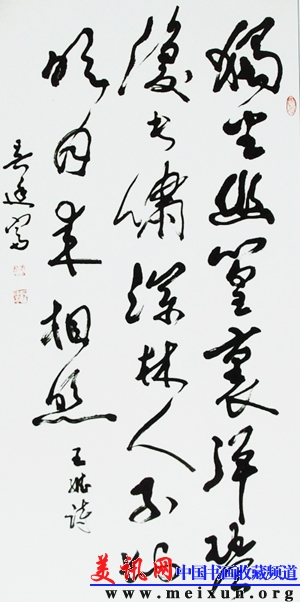 獨坐幽篁裏彈琴
復長嘯深林人不知
明月来相照
王维诗
美讯网 中国书画收藏频道
www.meixun.org